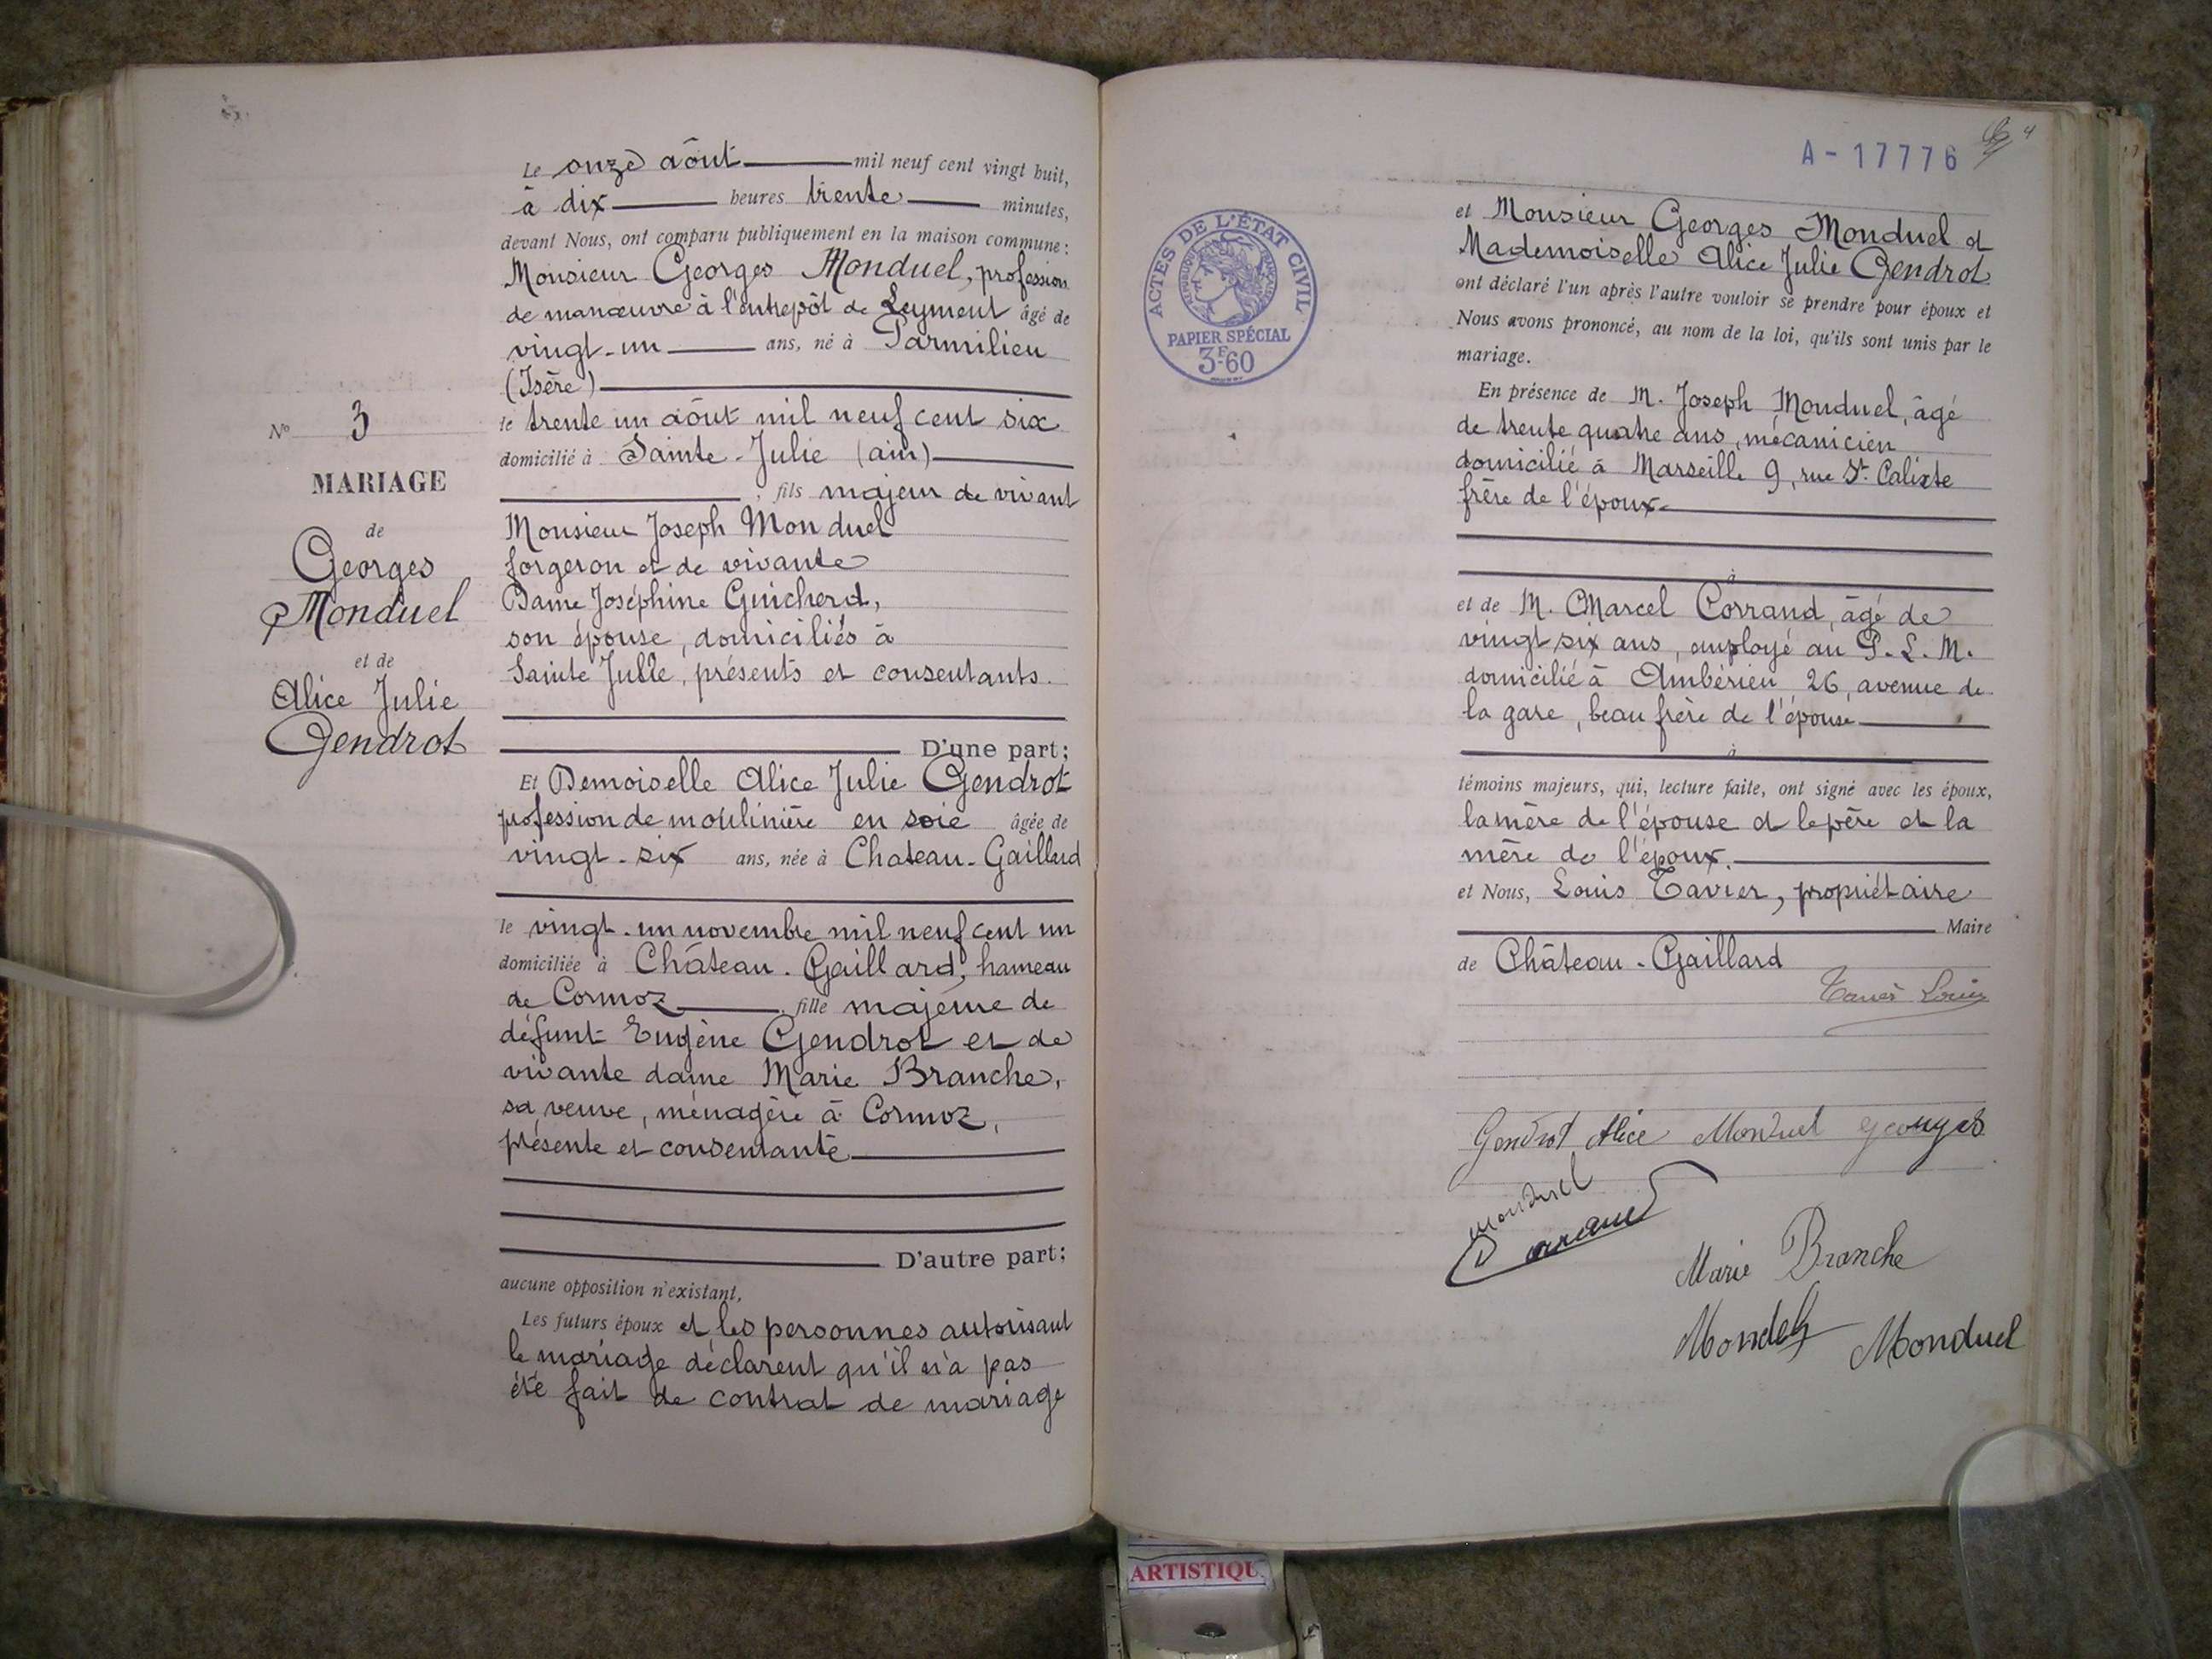 Le onze aôut mil neuf cent vingt huit,
à dix heures trente minutes,
devant Nous, ont comparu publiquement en la maison commune :
Monsieur Georges Monduel, profession
de manœuvre à l'entrepôt de Leyment âgé de
vingt-un ans, né à Parmilieu
(Isère)
le trente un aôut mil neuf cent six
domicilié à Sainte-Julie (ain)
, fils majeur de vivant
Monsieur Joseph Monduel
forgeron et de vivante
Dame Joséphine Guicherd,
son épouse, domiciliés à
Sainte Julie, présents et consentants.
D'une part;
N° 3
MARIAGE
de
Georges
Monduel
et de
Alice Julie
Gendrot
Et Demoiselle Alice Julie Gendrot
profession de moulinière en soie âgée de
vingt-six ans, née à Chateau-Gaillard
le vingt-un novembre mil neuf cent un
domiciliée à Château-Gaillard, hameau
de Cormoz, fille majeure de
défunt Eugène Gendrot et de
vivante dame Marie Branche,
sa veuve, ménagère à Cormoz,
présente et consentante
D'autre part;
aucune opposition n'existant,
Les futurs époux et les personnes autorisant
le mariage déclarent qu'il n'a pas
été fait de contrat de mariage
A-17776
4
ACTES DE L'ÉTAT CIVIL
RÉPUBLIQUE FRANÇAISE
PAPIER SPÉCIAL
3F60
et Monsieur Georges Monduel et
Mademoiselle Alice Julie Gendrot
ont déclaré l'un après l'autre vouloir se prendre pour époux et
Nous avons prononcé, au nom de la loi, qu'ils sont unis par le
mariage.
En présence de M. Joseph Monduel, âgé
de trente quatre ans, mécanicien
domicilié à Marseille 9, rue St. Calixte
frère de l'époux
à
et de M. Marcel Corrand, âgé de
vingt six ans, employé au P.L.M.
domicilié à Ambérieu, 26, avenue de
la gare, beau frère de l'épouse
à
témoins majeurs, qui, lecture faite, ont signé avec les époux,
la mère de l'épouse et le père et la
mère de l'époux.
et Nous, Louis Tavier, propriétaire
Maire
de Château-Gaillard
Louis
Gendrot Alice Monduel Georges
Monduel
Corrand
Marie Branche
Monduel
ARTISTIQU